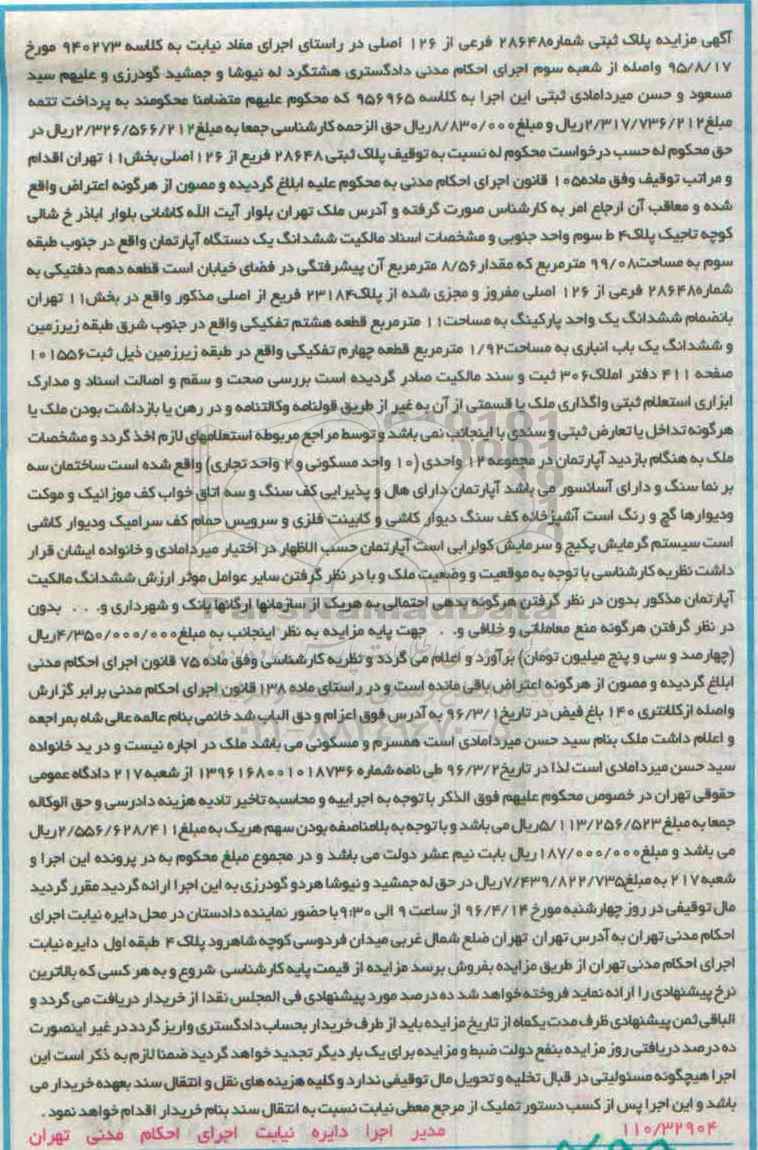 آگهی مزایده پلاک ثبتی شماره۲۸۶۴۸ فرعی از ۱۲۶ اصلی در راستای اجرای مفاد نیابت به کلاسه ۹۴۰۲۷۳ مورخ
۹۵/۸/۱۷ واصله از شعبه سوم اجرای احکام مدنی دادگستری هشتگرد له نیوشا و جمشید گودرزی و علیهم سید
مسعود و حسن میردامادی ثبتی این اجرا به کلاسه ۹۵۶۹۶۵ که محکوم علیهم متضامنا محکومند به پرداخت تتمه
مبلغ۲/۳۱۷/۷۳۶/۲۱۲ریال و مبلغ۸/۸۳۰/۰۰۰ریال حق الزحمه کارشناسی جمعا به مبلغ۲/۳۲۶/۵۶۶/۲۱۲ریال در
حق محکوم له حسب درخواست محکوم له نسبت به توقیف پلاک ثبتی ۲۸۶۴۸ فریع از ۱۲۶اصلی بخش۱۱ تهران اقدام
و مراتب توقیف وفق ماده۱۰۵ قانون اجرای احکام مدنی به محکوم علیه ابلاغ گردیده و مصون از هرگونه اعتراض واقع
شده و معاقب آن ارجاع امر به کارشناس صورت گرفته و آدرس ملک تهران بلوار آیت الله کاشانی بلوار اباذر خ شالی
کوچه تاجیک پلاک۴ ط سوم واحد جنوبی و مشخصات اسناد مالکیت ششدانگ یک دستگاه آپارتمان واقع در جنوب طبقه
سوم به مساحت۹۹/۰۸ مترمربع که مقدار۸/۵۶ مترمربع آن پیشرفتگی در فضای خیابان است قطعه دهم دفتیکی به
شماره۲۸۶۴۸ فرعی از ۱۲۶ اصلی مفروز و مجزی شده از پلاک۲۳۱۸۴ فریع از اصلی مذکور واقع در بخش۱۱ تهران
بانضمام ششدانگ یک واحد پارکینگ به مساحت۱۱ مترمربع قطعه هشتم تفکیکی واقع در جنوب شرق طبقه زیرزمین
و ششدانگ یک باب انباری به مساحت۱/۹۲ مترمربع قطعه چهارم تفکیکی واقع در طبقه زیرزمین ذیل ثبت۱۰۱۵۵۶
صفحه ۴۱۱ دفتر املاک۳۰۶ ثبت و سند مالکیت صادر گردیده است بررسی صحت و سقم و اصالت اسناد و مدارک
ابرازی استعلام ثبتی واگذاری ملک یا قسمتی از آن به غیر از طریق قولنامه وکالتنامه و در رهن یا بازداشت بودن ملک یا
هرگونه تداخل یا تعارض ثبتی و سندی با اینجانب نمی باشد و توسط مراجع مربوطه استعلامهای لازم اخذ گردد و مشخصات
ملک به هنگام بازدید آپارتمان در مجموعه ۱۲ واحدی (۱۰ واحد مسکونی و ۲ واحد تجاری) واقع شده است ساختمان سه
بر نما سنگ و دارای آسانسور می باشد آپارتمان دارای هال و پذیرایی کف سنگ و سه اتاق خواب کف موزائیک و موکت
ودیوارها گچ و رنگ است آشپزخانه کف سنگ دیوار کاشی و کابینت فلزی و سرویس حمام کف سرامیک ودیوار کاشی
است سیستم گرمایش پکیج و سرمایش کولرابی است آپارتمان حسب الاظهار در اختیار میردامادی و خانواده ایشان قرار
داشت نظریه کارشناسی با توجه به موقعیت و وضعیت ملک و با در نظر گرفتن سایر عوامل موثر ارزش ششدانگ مالکیت
آپارتمان مذکور بدون در نظر گرفتن هرگونه بدهی احتمالی به هریک از سازمانها ارگانها بانک و شهرداری و. . . بدون
در نظر گرفتن هرگونه منع معاملاتی و خلافی و. . جهت پایه مزایده به نظر اینجانب به مبلغ۴/۳۵۰/۰۰۰/۰۰۰ریال
(چهارصد و سی و پنج میلیون تومان) برآورد و اعلام می گردد و نظریه کارشناسی وفق ماده ۷۵ قانون اجرای احکام مدنی
ابلاغ گردیده و مصون از هرگونه اعتراض باقی مانده است و در راستای ماده ۱۳۸ قانون اجرای احکام مدنی برابر گزارش
واصله از کلانتری ۱۴۰ باغ فیض در تاریخ۹۶/۳/۱ به آدرس فوق اعزام و دق الباب شد خانمی بنام عالمه عالی شاه بمراجعه
و اعلام داشت ملک بنام سید حسن میردامادی است همسرم و مسکونی می باشد ملک در اجاره نیست و در ید خانواده
سید حسن میردامادی است لذا در تاریخ۹۶/۳/۲ طی نامه شماره ۱۳۹۶۱۶۸۰۰۱۰۱۸۷۳۶ از شعبه ۲۱۷ دادگاه عمومی
حقوقی تهران در خصوص محکوم علیهم فوق الذکر با توجه به اجراییه و محاسبه تاخیر تادیه هزینه دادرسی و حق الوکاله
جمعا به مبلغ ۵/۱۱۳/۲۵۶/۵۲۳ریال می باشد و با توجه به بالمناصفه بودن سهم هریک به مبلغ۲/۵۵۶/۶۲۸/۴۱۱ریال
می باشد و مبلغ۱۸۷/۰۰۰/۰۰۰ریال بابت نیم عشر دولت می باشد و در مجموع مبلغ محکوم به در پرونده این اجرا و
شعبه ۲۱۷ به مبلغ۷/۴۳۹/۸۲۲/۷۳۵ریال در حق له جمشید و نیوشا هردو گودرزی به این اجرا ارائه گردید مقرر گردید
مال توقیفی در روز چهارشنبه مورخ ۹۶/۴/۱۴ از ساعت ۹ الی ۹:۳۰با حضور نماینده دادستان در محل دایره نیابت اجرای
احکام مدنی تهران به آدرس تهران تهران ضلع شمال غربی میدان فردوسی کوچه شاهرود پلاک ۴ طبقه اول دایره نیابت
اجرای احکام مدنی تهران از طریق مزایده بفروش برسد مزایده از قیمت پایه کارشناسی شروع و به هر کسی که بالاترین
نرخ پیشنهادی را ارائه نماید فروخته خواهد شد ده درصد مورد پیشنهادی فی المجلس نقدا از خریدار دریافت می گردد و
الباقی ثمن پیشنهادی ظرف مدت یکماه از تاریخ مزایده باید از طرف خریدار بحساب دادگستری واریز گردد در غیر اینصورت
ده درصد دریافتی روز مزایده بنفع دولت ضبط و مزایده برای یک بار دیگر تجدید خواهد گردید ضمنا لازم به ذکر است این
اجرا هیچگونه مسئولیتی در قبال تخلیه و تحویل مال توقیفی ندارد و کلیه هزینه های نقل و انتقال سند بعهده خریدار می
باشد و این اجرا پس از کسب دستور تملیک از مرجع معطی نیابت نسبت به انتقال سند بنام خریدار اقدام خواهد نمود .
۱۱۰/۳۲۹۰۴ مدیر اجرا دایره نیابت اجرای احکام مدنی تهران